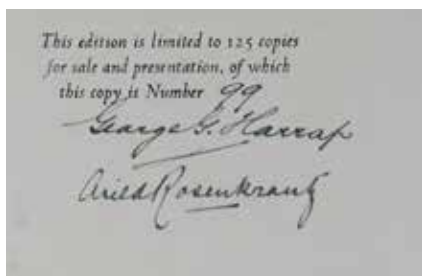 This edition is limited to 125 copies
for sale and presentation, of which
this copy is Number 99
George G. Harrap
Arild Rosenkrantz